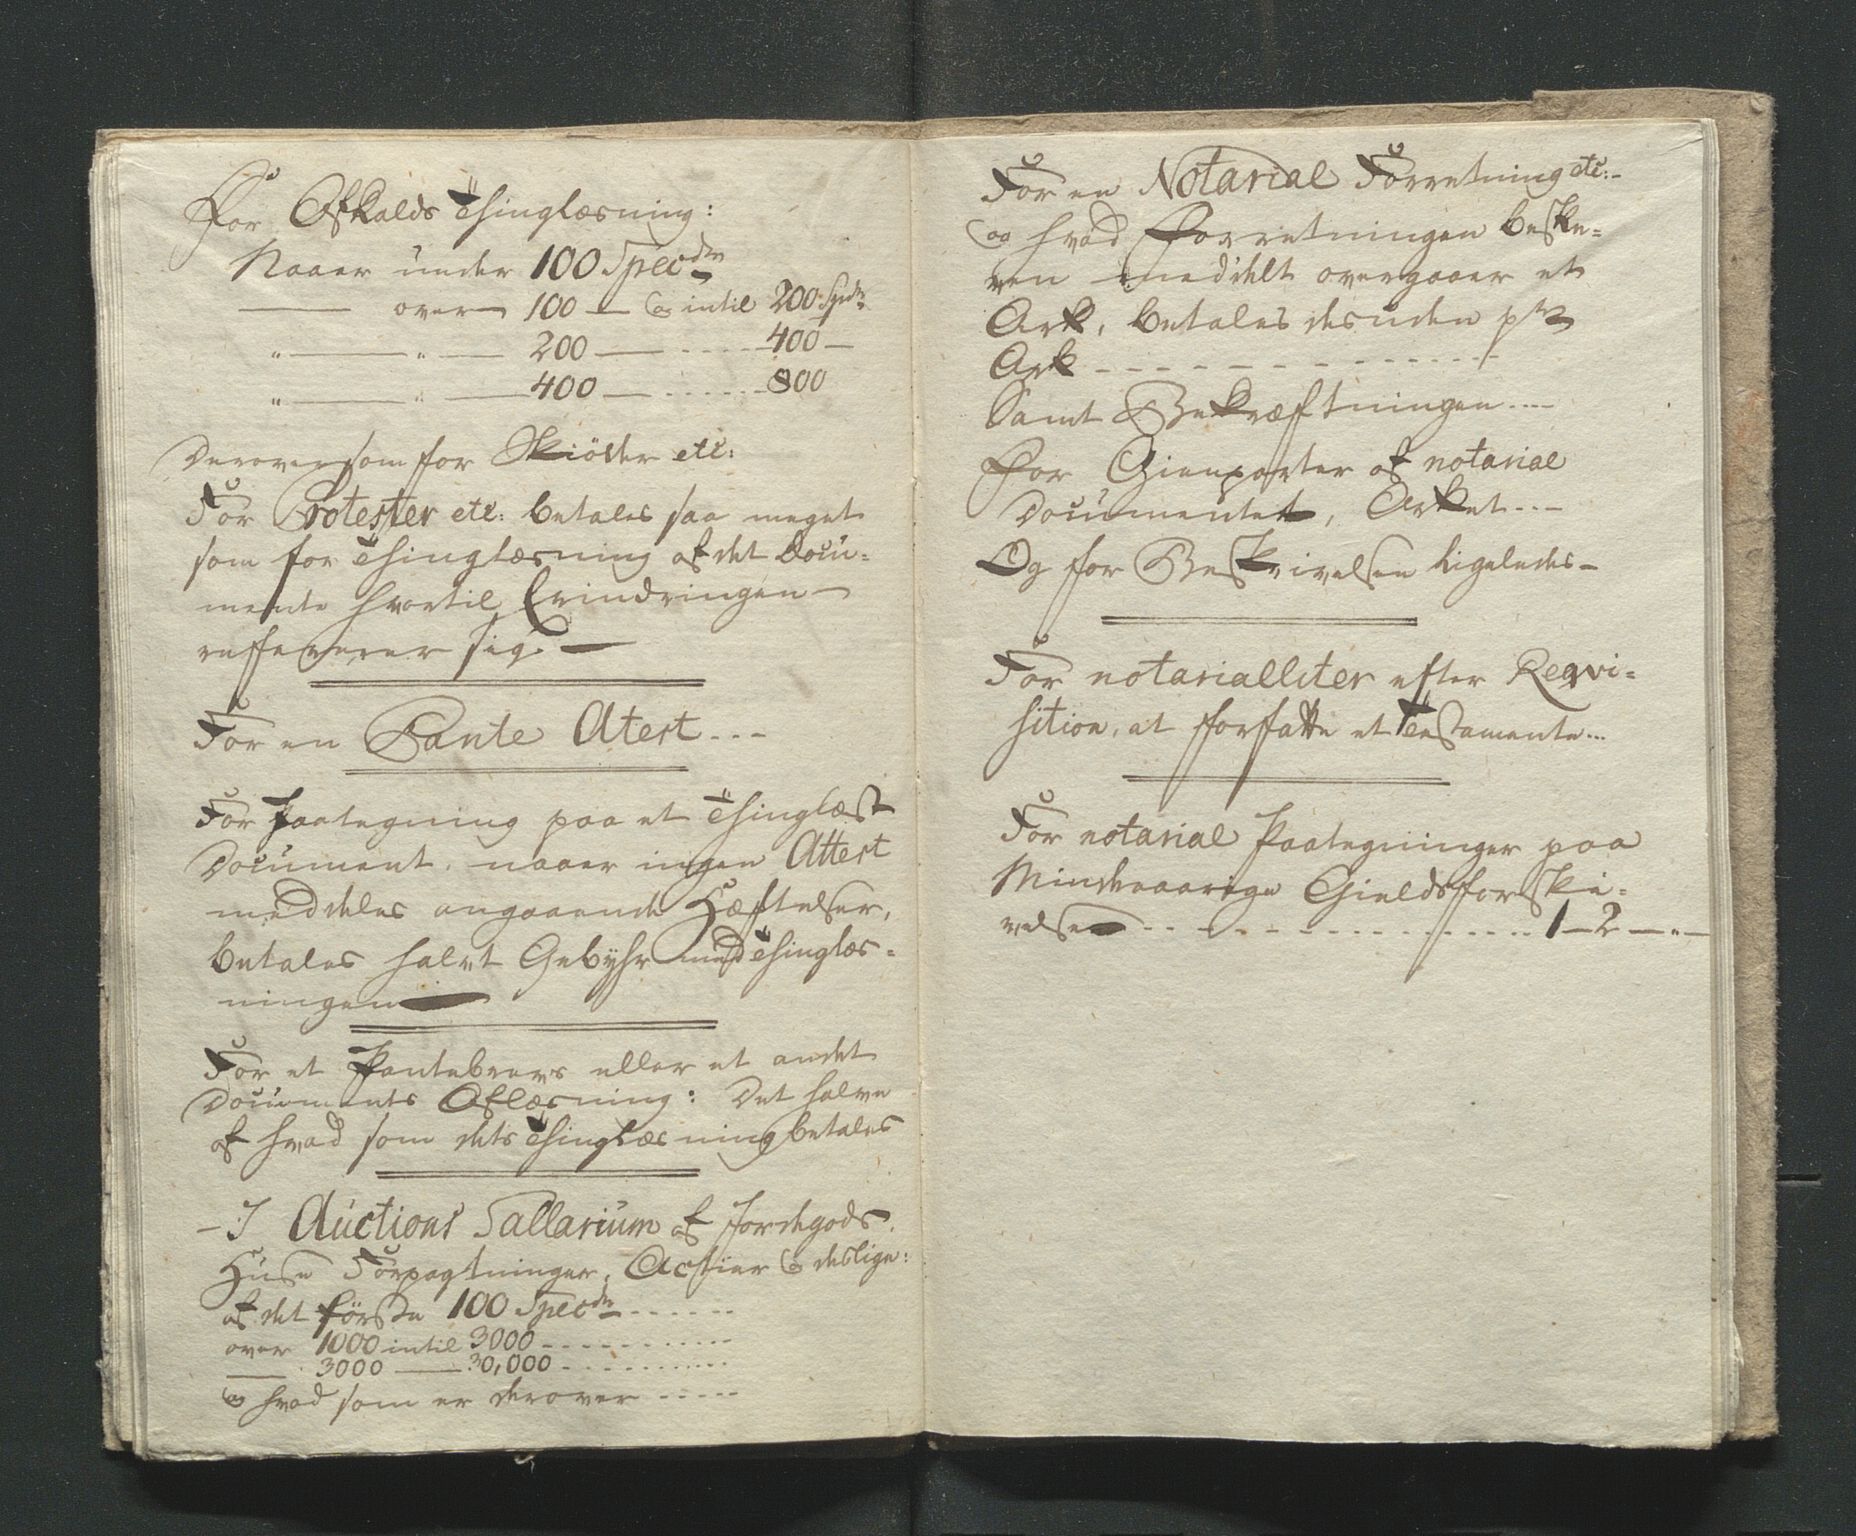 For Afkalds Thinglæsning:
Naaer under 100 Specdlr
— over — 100 — og intil 200 Spdlr
„ — „ — 200 — - - - - 400 —
„ — „ — 400 — - - - - 800
Derover som for Skiöder etc:
For Protester etc: betales saa meget
som for Thinglæsning af det Docu-
mente hvortil Erindringen —
reffererer sig. —
For en Pante Atest - - -
For Paategning paa et Thinglæst
Document, naaer ingen Attest
meddeles angaaende Hæftelser,
betales halvt Gebyhr med Thinglæs-
ningen —
For et Pantebrevs eller et andet
Documents Aflæsning: Det halve
af hvad som dets Thinglæsning betales
- I Auctions Sallarium af Jordegods,
Huse Forpagtninger, Actier og deslige:
af det förste 100 Specdlr - - - - - -
over 1000 intil 3000 - - - - - - - - -
— 3000 — 30,000 - - - - - - - - -
og hvad som er derover - - - - -
For en Notarial Forretning etc:-
og hvad Forretningen beskre-
ven meddelt overgaaer et
Ark, betales desuden pr
Ark - - - - - - - - - - - - -
Samt Bekræftningen - - - -
For Gienparter af notarial
Documenter, Arket - - -
Og for Beskrivelsen ligeledes -
For notarialiter efter Reqvi-
sition, at forfatte et Testamente...
For notarial Paategninger paa
Mindreaarige Gieldsforskri-
velser - - - - - - - - - - - - - - - 1 - 2 - „ -